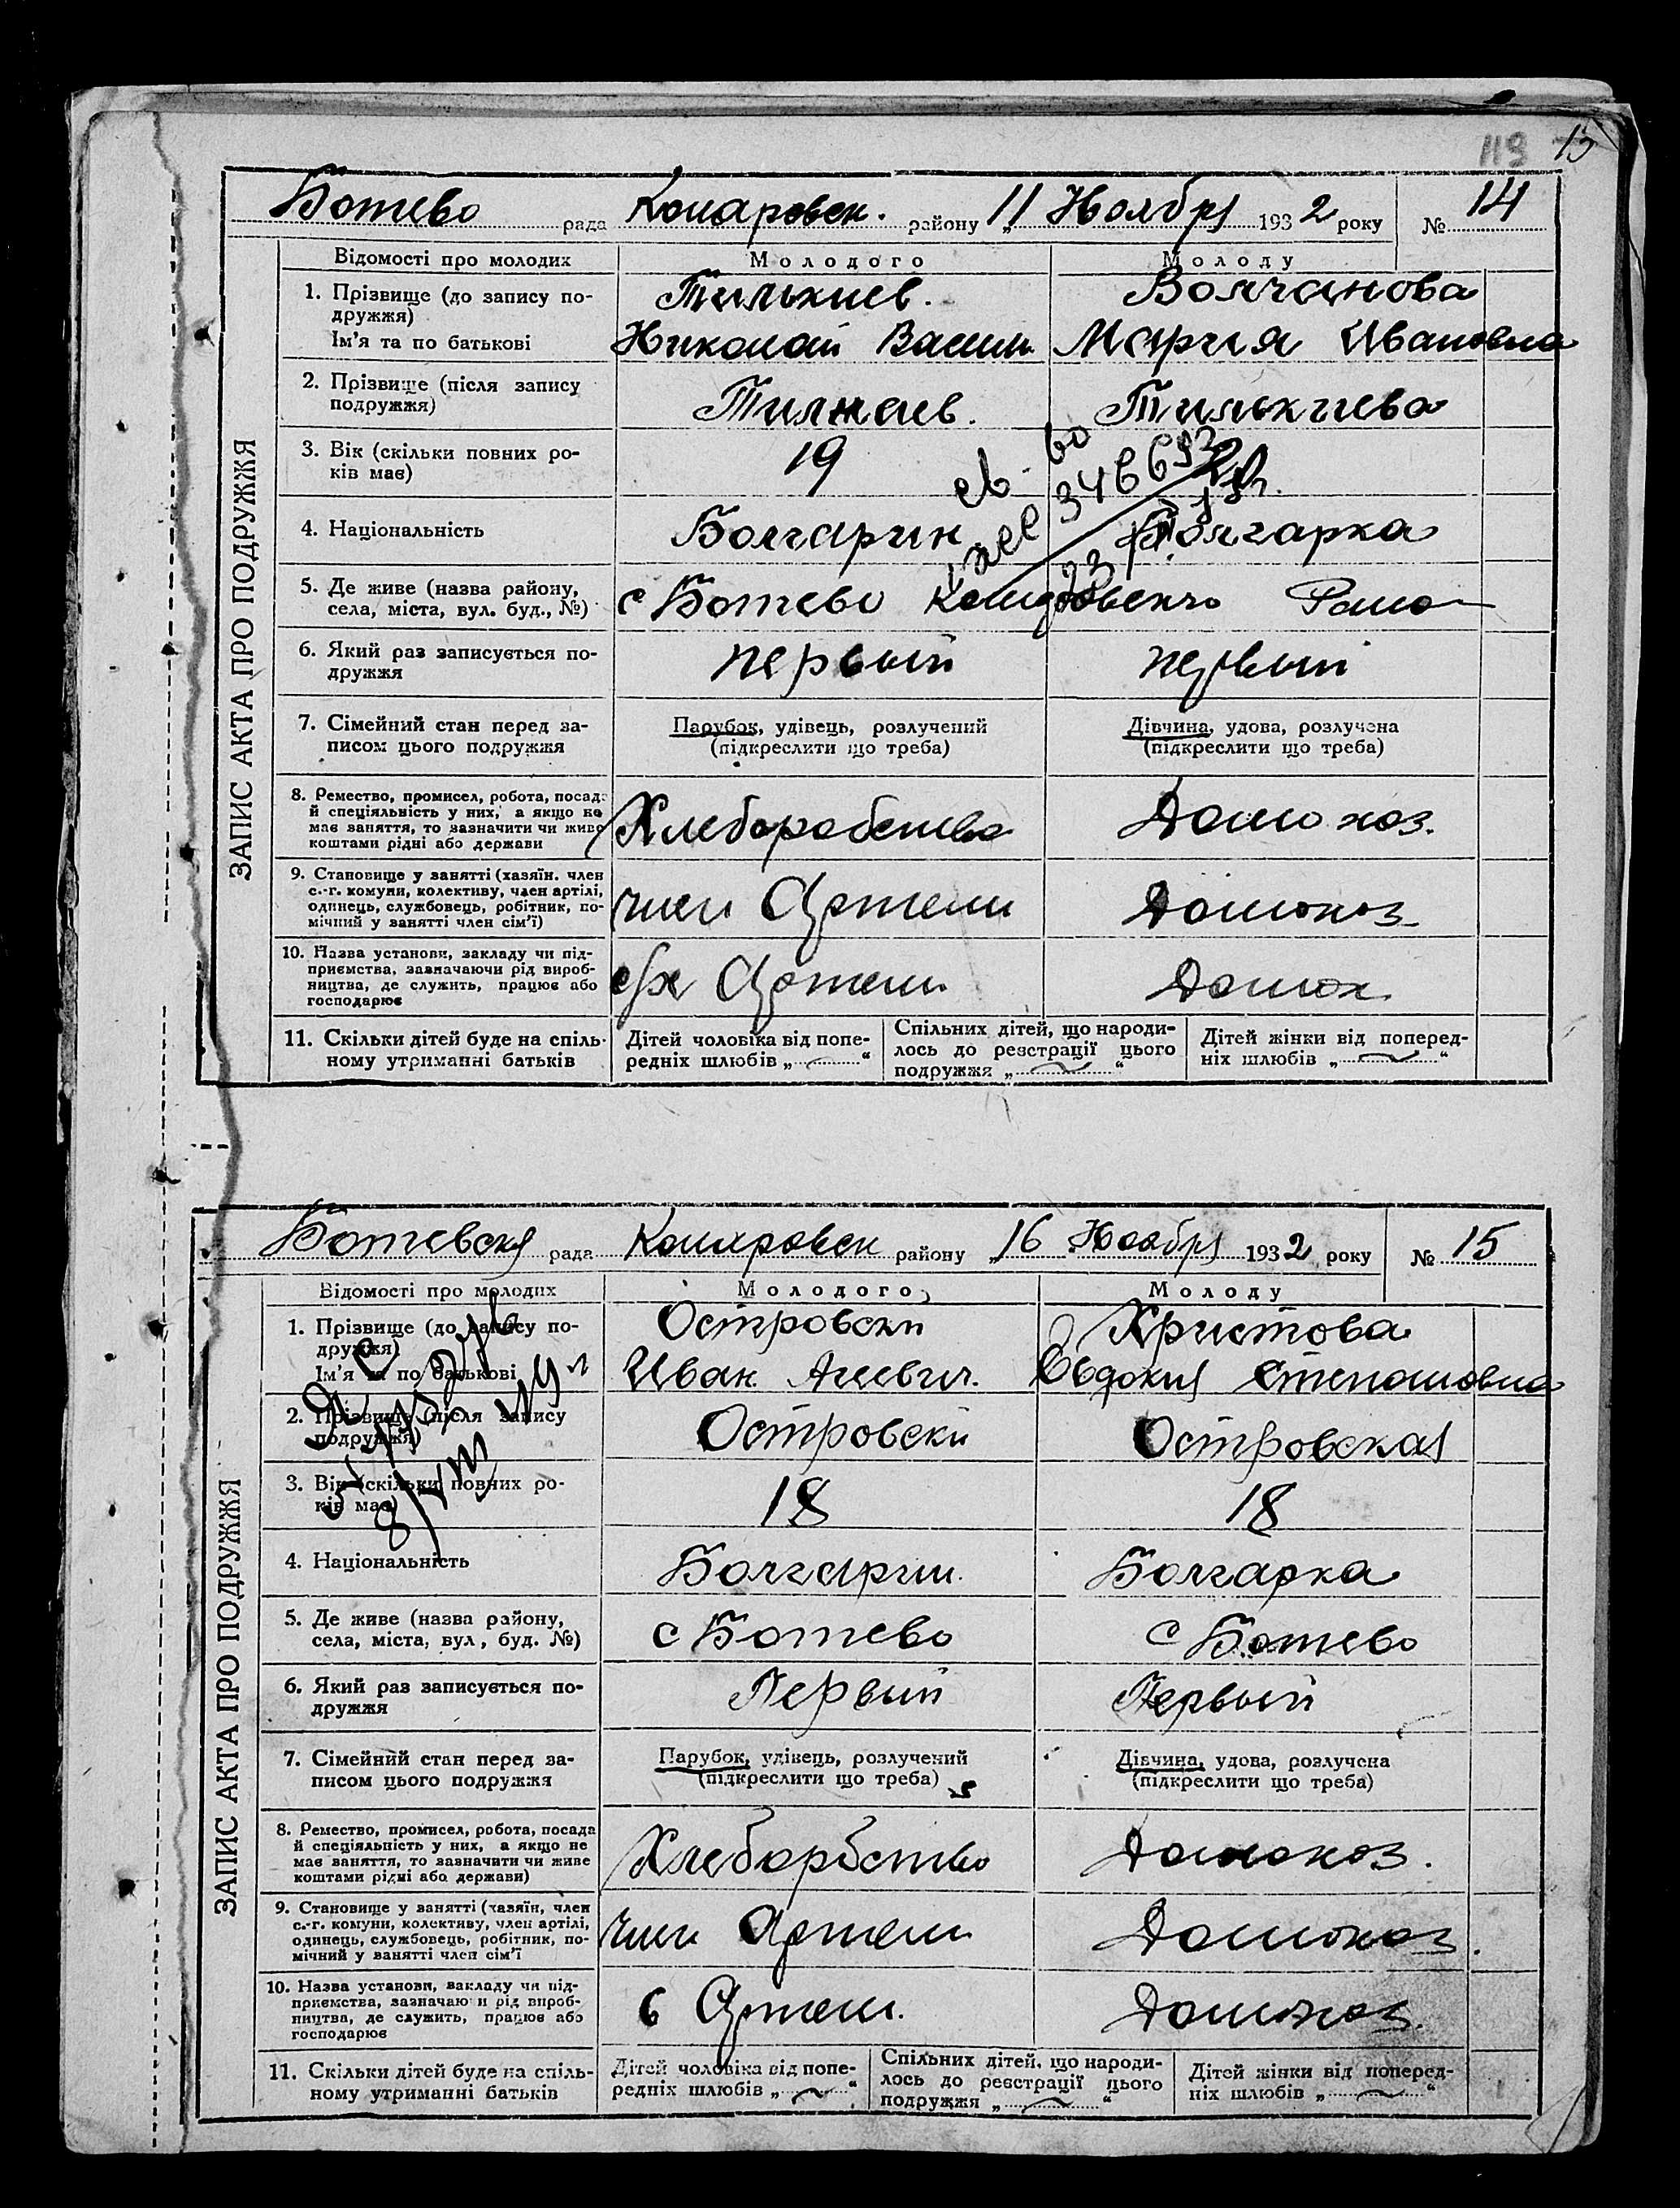 119 15
Ботево рада Комаровск. району „11 Ноября 1932 року № 14
ЗАПИС АКТА ПРО ПОДРУЖЖЯ
Відомості про молодих Молодого Молоду
1. Прізвище (до запису по-
дружжя) Волчанова
Ім'я та по батькові Николай Васил. Мария Ивановна
2. Прізвище (після запису
подружжя)
3. Вік (скільки повних ро-
ків має) 19
4. Національність Болгарин Болгарка
5. Де живе (назва району,
села, міста, вул. буд., №) с Ботево
6. Який раз записується по-
дружжя первый первый
7. Сімейний стан перед за-
писом цього подружжя
Парубок, удівець, розлучений
(підкреслити що треба)
Дівчина, удова, розлучена
(підкреслити що треба)
8. Ремество, промисел, робота, посада
й спеціяльність у них, а якщо не
має заняття, то зазначити чи живе
коштами рідні або держави
Хлеборобство Домохоз.
9. Становище у занятті (хазяїн. член
с.-г. комуни, колективу, член артілі,
одинець, службовець, робітник, по-
мічний у занятті член сім'ї)
член Артели Домохоз
10. Назва установи, закладу чи під-
приємства, зазначаючи рід вироб-
ництва, де служить, працює або
господарює
с/х Артели Домох
11. Скільки дітей буде на спіль-
ному утриманні батьків
Дітей чоловіка від попе-
редніх шлюбів „ ~ “
Спільних дітей, що народи-
лось до реєстрації цього
подружжя „ ~ “
Дітей жінки від поперед-
ніх шлюбів „ ~ “
Ботевск рада Комаровск району „16 Ноября 1932 року № 15
ЗАПИС АКТА ПРО ПОДРУЖЖЯ
Відомості про молодих Молодого Молоду
1. Прізвище (до запису по-
дружжя) Островски Христова
Ім'я та по батькові Иван Евдокия Степановна
2. Прізвище (після запису
подружжя) Островски Островская
3. Вік (скільки повних ро-
ків має) 18 18
4. Національність Болгарин Болгарка
5. Де живе (назва району,
села, міста, вул, буд. №) с Ботево с Ботево
6. Який раз записується по-
дружжя Первый Первый
7. Сімейний стан перед за-
писом цього подружжя
Парубок, удівець, розлучений
(підкреслити що треба)
Дівчина, удова, розлучена
(підкреслити що треба)
8. Ремество, промисел, робота, посада
й спеціяльність у них, а якщо не
має заняття, то зазначити чи живе
коштами рідні або держави)
Хлеборбство Домохоз.
9. Становище у занятті (хазяїн, член
с.-г. комуни, колективу, член артілі,
одинець, службовець, робітник, по-
мічний у занятті член сім'ї
член Артели Домохоз.
10. Назва установи, закладу чи під-
приємства, зазначаючи рід вироб-
ництва, де служить, працює або
господарює
в Артели. Домохоз.
11. Скільки дітей буде на спіль-
ному утриманні батьків
Дітей чоловіка від попе-
редніх шлюбів „ ~ “
Спільних дітей, що народи-
лось до реєстрації цього
подружжя „ ~ “
Дітей жінки від поперед-
ніх шлюбів „ ~ “